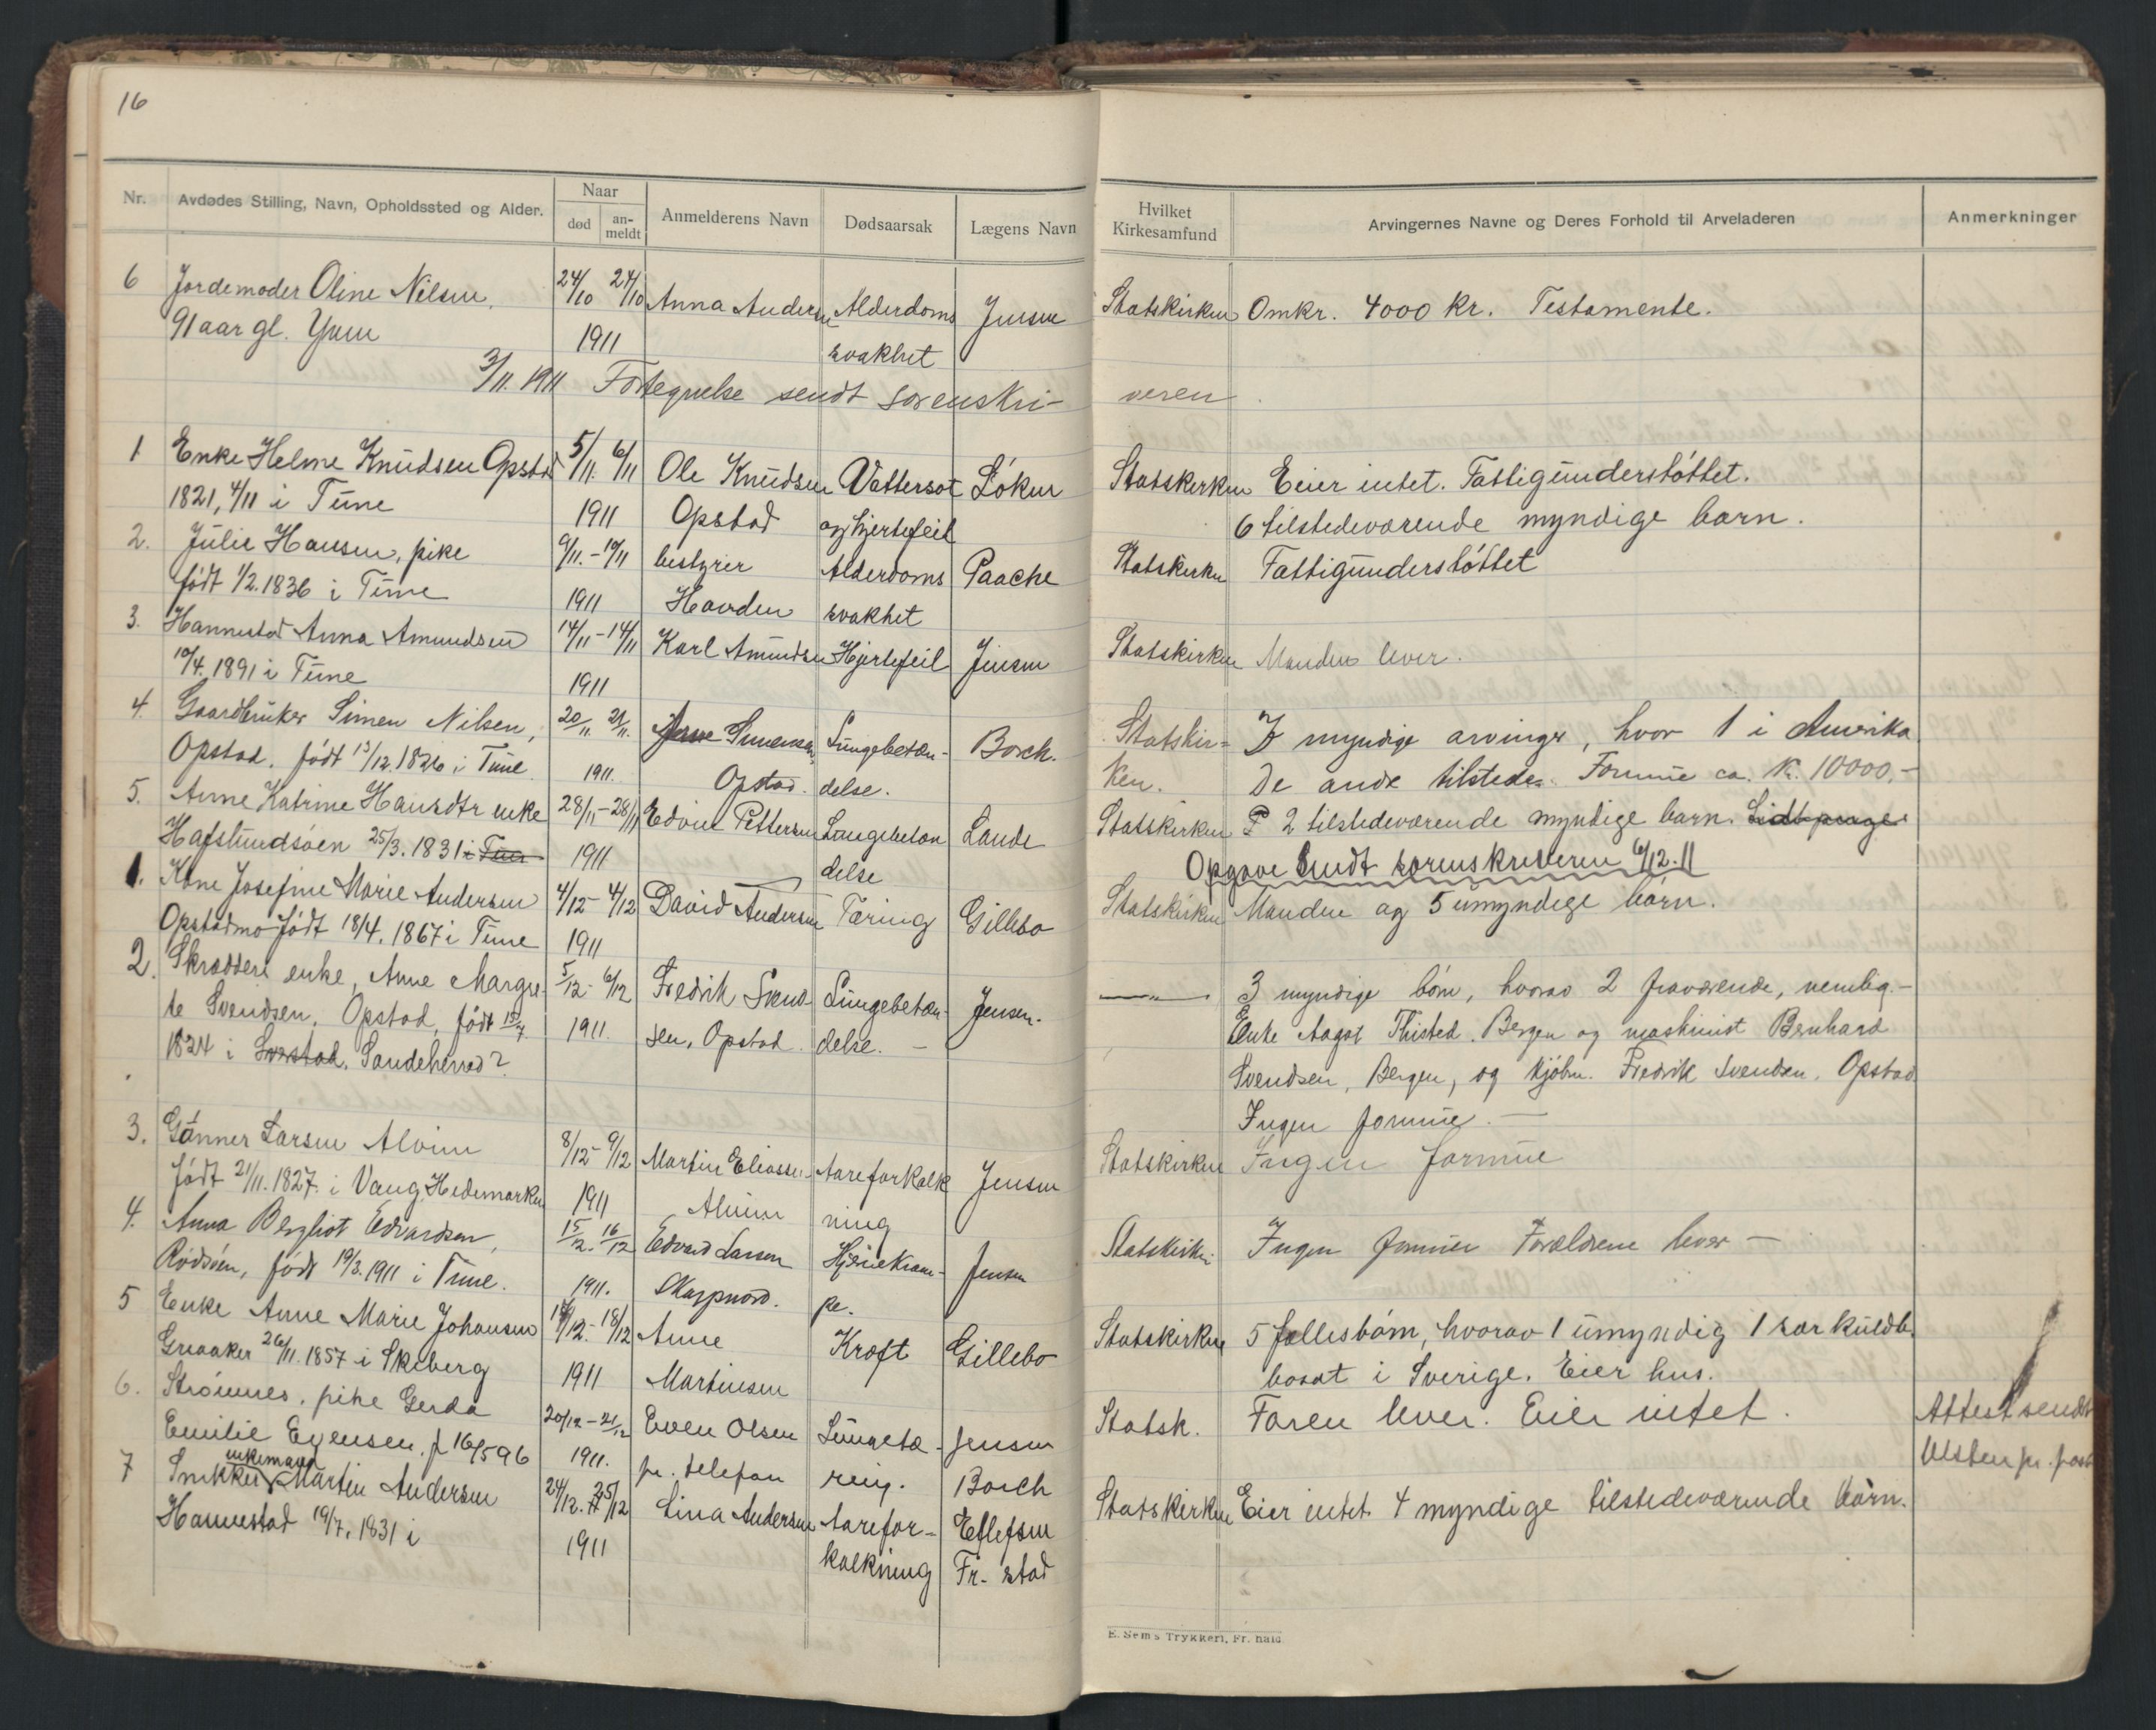 16
Nr.
Avdødes Stilling, Navn, Opholdssted og Alder.
Naar
død
an-
meldt
Anmelderens Navn
Dødsaarsak
Lægens Navn
Hvilket
Kirkesamfund
Arvingernes Navne og Deres Forhold til Arveladeren
Anmerkninger
6 Jordemoder Oline Nilsen. 24/10 24/10 Anna Andersen Alderdoms Jensen Statskirken Omkr. 4000 kr. Testamente.
91 aar gl. Yven 1911 svakhet
3/11. 1911 Fortegnelse sendt sorenskri- veren
1 Enke Helene Knudsen Opstad 5/11. 6/11 Ole Knudsen Vattersot Løken Statskirken Eier intet. Fattigunderstøttet.
1821, 4/11 i Tune 1911 Opstad og hjertefeil 6 tilstedeværende myndige barn.
2. Julie Hansen, pike 9/11.-10/11 bestyrer Alderdoms Paache Statskirken Fattigunderstøttet
født 1/2.1836 i Tune 1911 Haorden svakhet
3. Hannestad Anna Amundsen 14/11-14/11 Karl Amundsen Hjertefeil Jensen Statskirken Manden lever.
10/4. 1891 i Tune 1911
4. Gaardbruker Simen Nilsen, 20/11 21/11. Simensen Lungebetæn- Borch. Statskir-
Opstad. født 13/12.1826 i Tune. 1911. Opstad. delse. ken.
7 myndige arvinger, hvor 1 i Amerika
De andr tilstede. Formue ca. Kr. 10000,-
5. Anne Katrine Hansdtr enke 28/11-28/11 Edvin Pettersen Lungebetæn Lande Statskirken 2 tilstedeværende myndige barn.
Hafslundsøen 25/3. 1831 i Tune 1911 delse
Opgave sendt sorenskriveren 6/12.11
1. Kone Josefine Marie Andersen 4/12-4/12 David Andersen Tæring Gillebo Statskirken Manden og 5 umyndige børn.
Opstadmo født 18/4. 1867 i Tune 1911
2. Skrædders enke, Anne Margre- 5/12-6/12 Fredrik Svend- Lungebetæn- Jensen. —„— 3 myndige børn, hvorav 2 fraværende, nemlig-
te Svendsen, Opstad, født 15/4. 1911. sen, Opstad. delse. — Enke Aagot Thisted, Bergen og maskinist Bernhard
1824 i Sandeherred? Svendsen, Bergen, og kjøbm. Fredrik Svendsen, Opstad
Ingen formue. —
3. Gunner Larsen Alvim 8/12-9/12 Martin Eliassen Aareforkalk Jensen Statskirken Ingen formue
født 21/11. 1827. i Vang, Hedemarken 1911 Alvim ning
4. Anna Bergliot Edvardsen, 15/12. 16/12 Edvard Larsen Hjernekram- Jensen Statskirken Ingen formue Forældrene lever —
Rødsøen, født 19/3.1911 i Tune. 1911. Skarpnord. pe.
5 Enke Anne Marie Johansen 18/12 Anne Kræft Gillebo Statskirken 5 fællesbørn, hvorav 1 umyndig 1 særkuldb.
Greaaker 26/11. 1857 i Skeberg 1911 Martinsen bosat i Sverige. Eier hus.
6. Strømnes, pike Gerda 20/12-21/12 Even Olsen Lungetæ- Jensen Statsk. Faren lever. Eier intet. Attest sendt
Emilie Evensen. f 16/5 96 1911. pr. telefon ring. Borch pr. post
7 Snekker enkemand Martin Andersen 24/12. 25/12 Lina Andersen Aarefor- Ellefsen Statskirken Eier intet. 4 myndige tilstedeværende børn.
Hannestad 19/7. 1831 i 1911 kalkning Fr.stad
E. Sem's Trykkeri, Fr.hald.